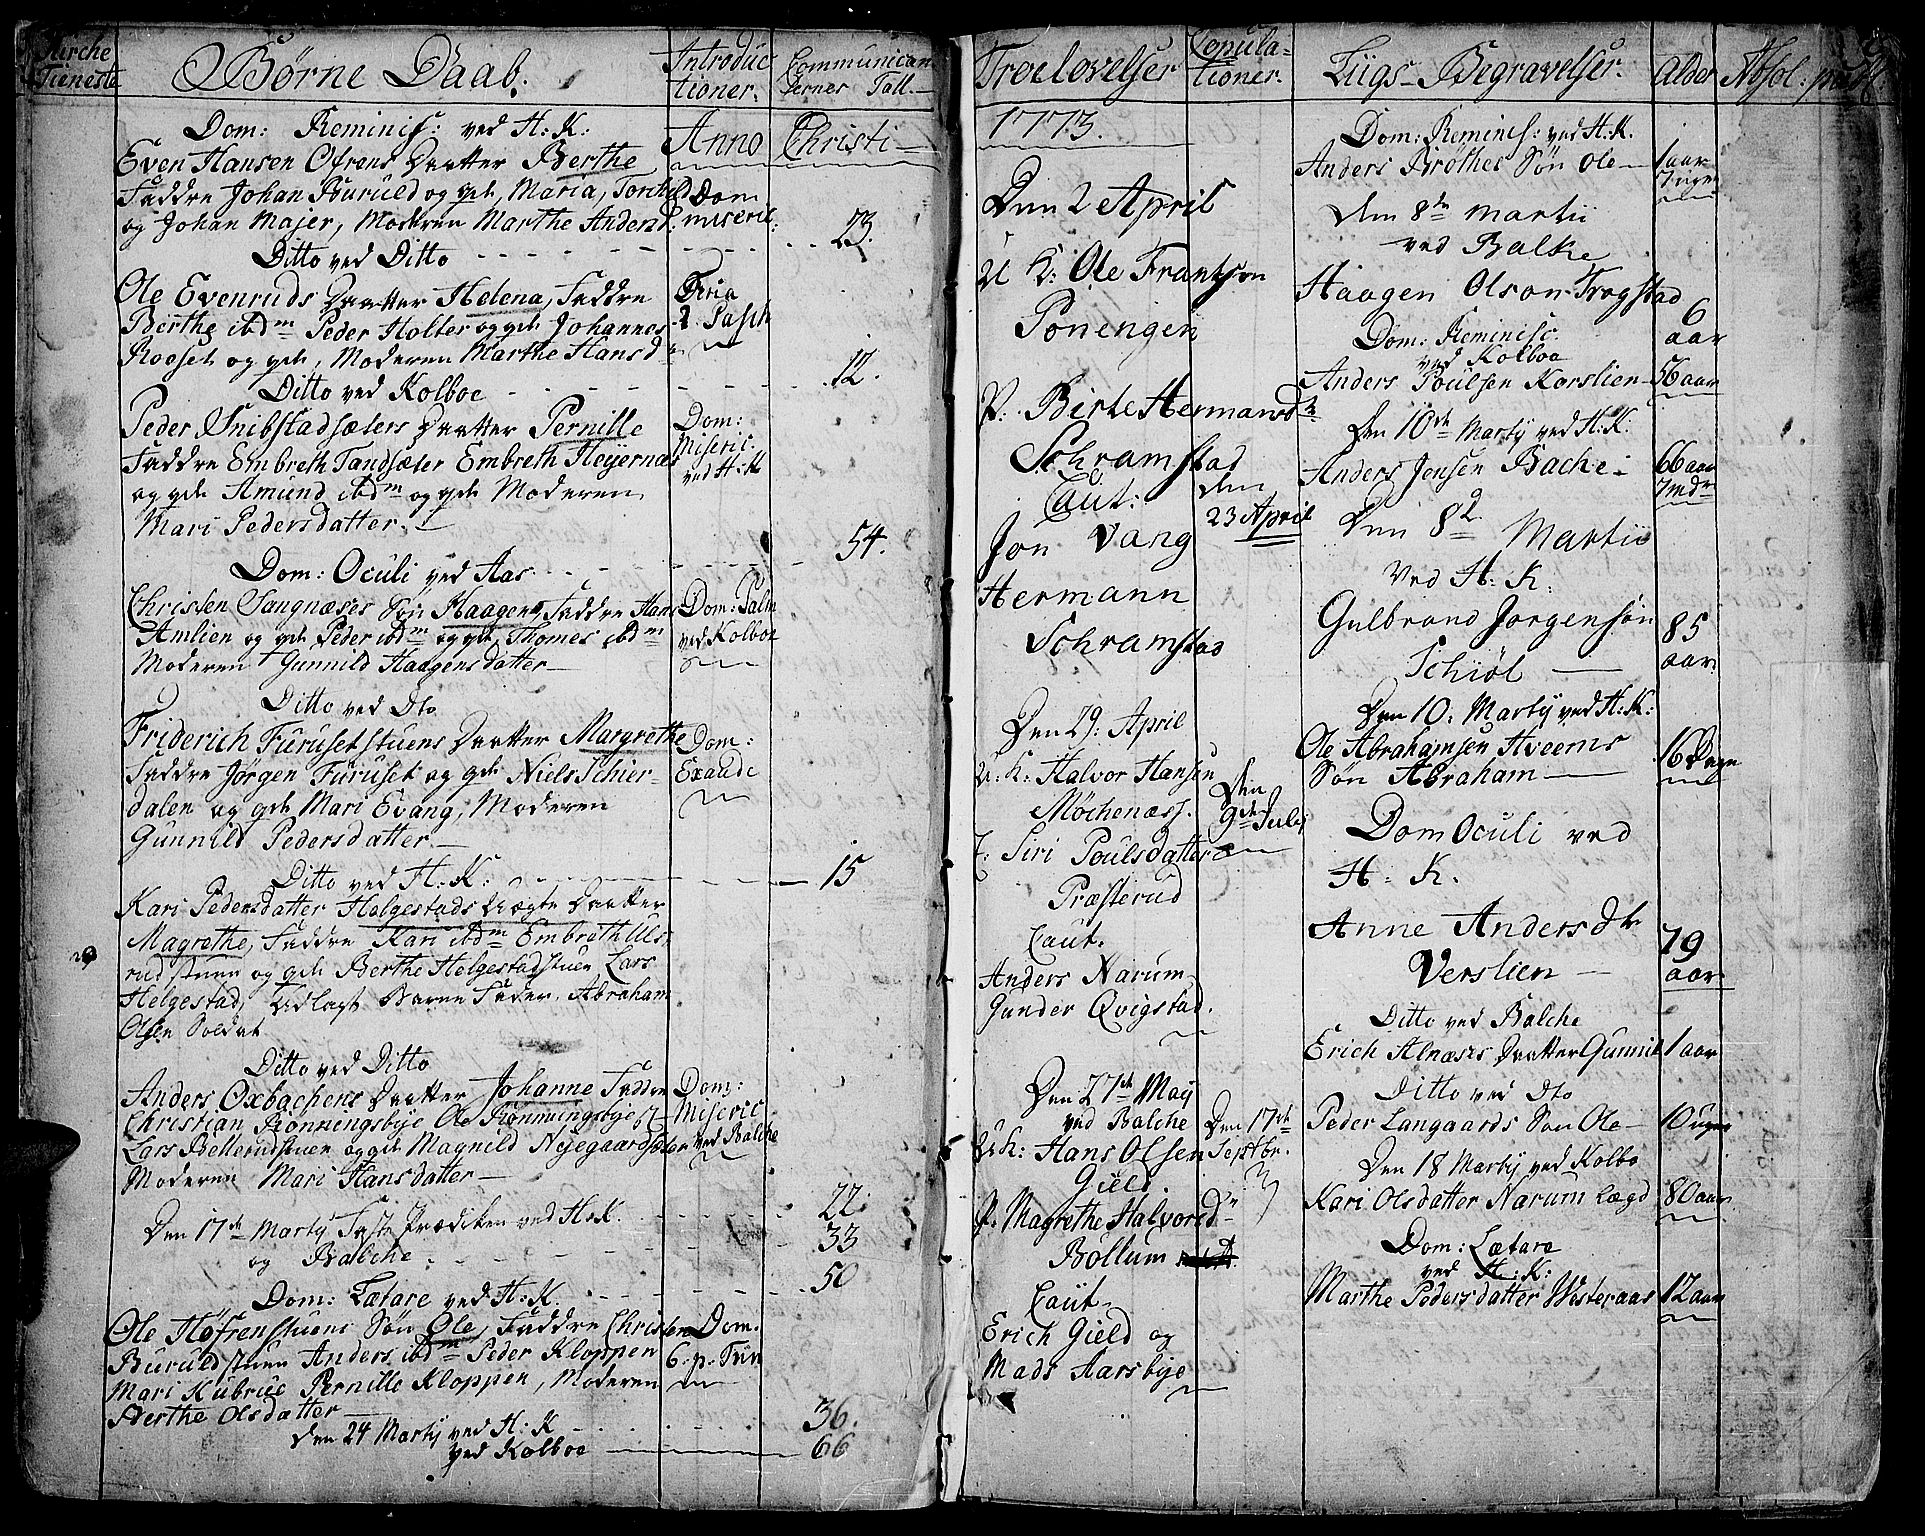 Kirche
Tieneste
Børne Daab.
Introduc
tioner.
Communican
ternes Tall.
Anno
Christi
Dom: Reminis: ved H: K:
Even Hansen Ofrens Daatter Berthe
Faddre Johan Buruld og qde, Maria, Torchel
og Johan Majer, Moderen Marthe Andersd.
Dom
miseric:
23.
Ditto ved Ditto
Ole Evenruds Daatter Helena, Faddre
Berthe ibdm Peder Holter og qde Johannes
Rooset og qde, Moderen Marthe Hansd
Feria
2 Pasch
12.
Ditto ved Kolboe
Peder Snibstadsæters Daatter Pernille
Faddre Embreth Tandsæter Embreth Heijernæs
og qde Amund ibdm og qde Moderen
Mari Pedersdatter.
Dom:
Miseric:
ved H: K
54.
Dom: Oculi ved Aas
Christen Sangnæses Søn Haagen, Faddre Hans
Amlien og qde Peder ibdm og qde, Thomes ibdm
Moderen Gunnild Haagensdatter
Dom: Palm
ved Kolboe
Ditto ved Dto
Friderich Furusetstuens Daatter Margrethe
Faddre Jørgen Furuset og qde Niels Schier-
dalen og qde Mari Evang, Moderen
Gunnild Pedersdatter
Dom:
Exaude
Ditto ved H: K:
15
Kari Pedersdatter Helgestads Uægte Daatter
Magrethe, Faddre Kari ibdm Embreth Uls-
rudstuen og qde Berthe Helgestadstuen Lars
Helgestad, Udlagt Barne Fader Abraham
Olsen Soldat
Ditto ved Ditto
Anders Oxbachens Daatter Johanne Faddre
Christian Rønningsbye Ole Rønningsbye
Lars Bellerudstuen og qde Magnild Nejegaardsæter
Moderen Mari Hansdatter
Dom:
Miseric
ved Balche
22.
Den 17de Martij Faste Prædiken ved H: K.
33
og Balche
50
Dom: Lætare ved H: K.
Ole Høfrenstuens Søn Ole, Faddre Christen
Buruldstuen Anders ibdm Peder Kloppen
Mari Kubrue Pernille Kloppen, Moderen
Berthe Olsdatter
Dom.
6. p. Trin
Den 24 Martij ved H: K
36.
ved Kolboe
66
Troelovelser
Copula-
tioner.
1773.
Den 2 April
U K: Ole Frantzøn
Ponengen
P. Birte Hermansdtr
Schramstad
Caut:
Jon Vang
Hermann
Schramstad
den
23 April
Den 29. April
U. K: Halvor Hansen
Møchenæss.
P: Siri Poulsdatter
Præsterud
Caut.
Anders Narum
Gunder Qvigstad.
Den
9de Julij
Den 27de Maij
ved Balche
U K: Hans Olsen
Gield
P. Magrethe Halvorsd
Bollum
Caut.
Erich Gield og
Mads Aarsbye
Den 17de
Septbr.
Liigs-Begravelser.
Alder
Absol: publ.
Dom: Reminis: ved H: K.
Anders Brothes Søn Ole
1 aar
7 uger
Den 8de Martii
ved Balke
Haagen Olson Trogstad
6
aar
Dom: Reminisc:
ved Kolboe
Anders Poulsen Korslien
56 aar
Den 10de Martij ved H: K:
Anders Jensen Bache
66 aar
7 mdr
Den 8de Martii
Ved H: K:
Gulbrand Jorgensøn
Schiøl
85
aar
Den 10: Martij ved H: K:
Ole Abrahamsen Hveems
Søn Abraham
16 Dage
Dom Oculi ved
H: K.
Anne Andersdtr
Verslien
79
aar
Ditto ved Balche
Erich Alnæses Daatter Gunnil
1 aar
Ditto ved Dto
Peder Langaards Søn Ole
10 uger
Den 18 Martij ved Kolbo
Kari Olsdatter Narum Lægd
80 aar
Dom: Lætare
ved H: K:
Marthe Pedersdatter Westeraas
12 aar